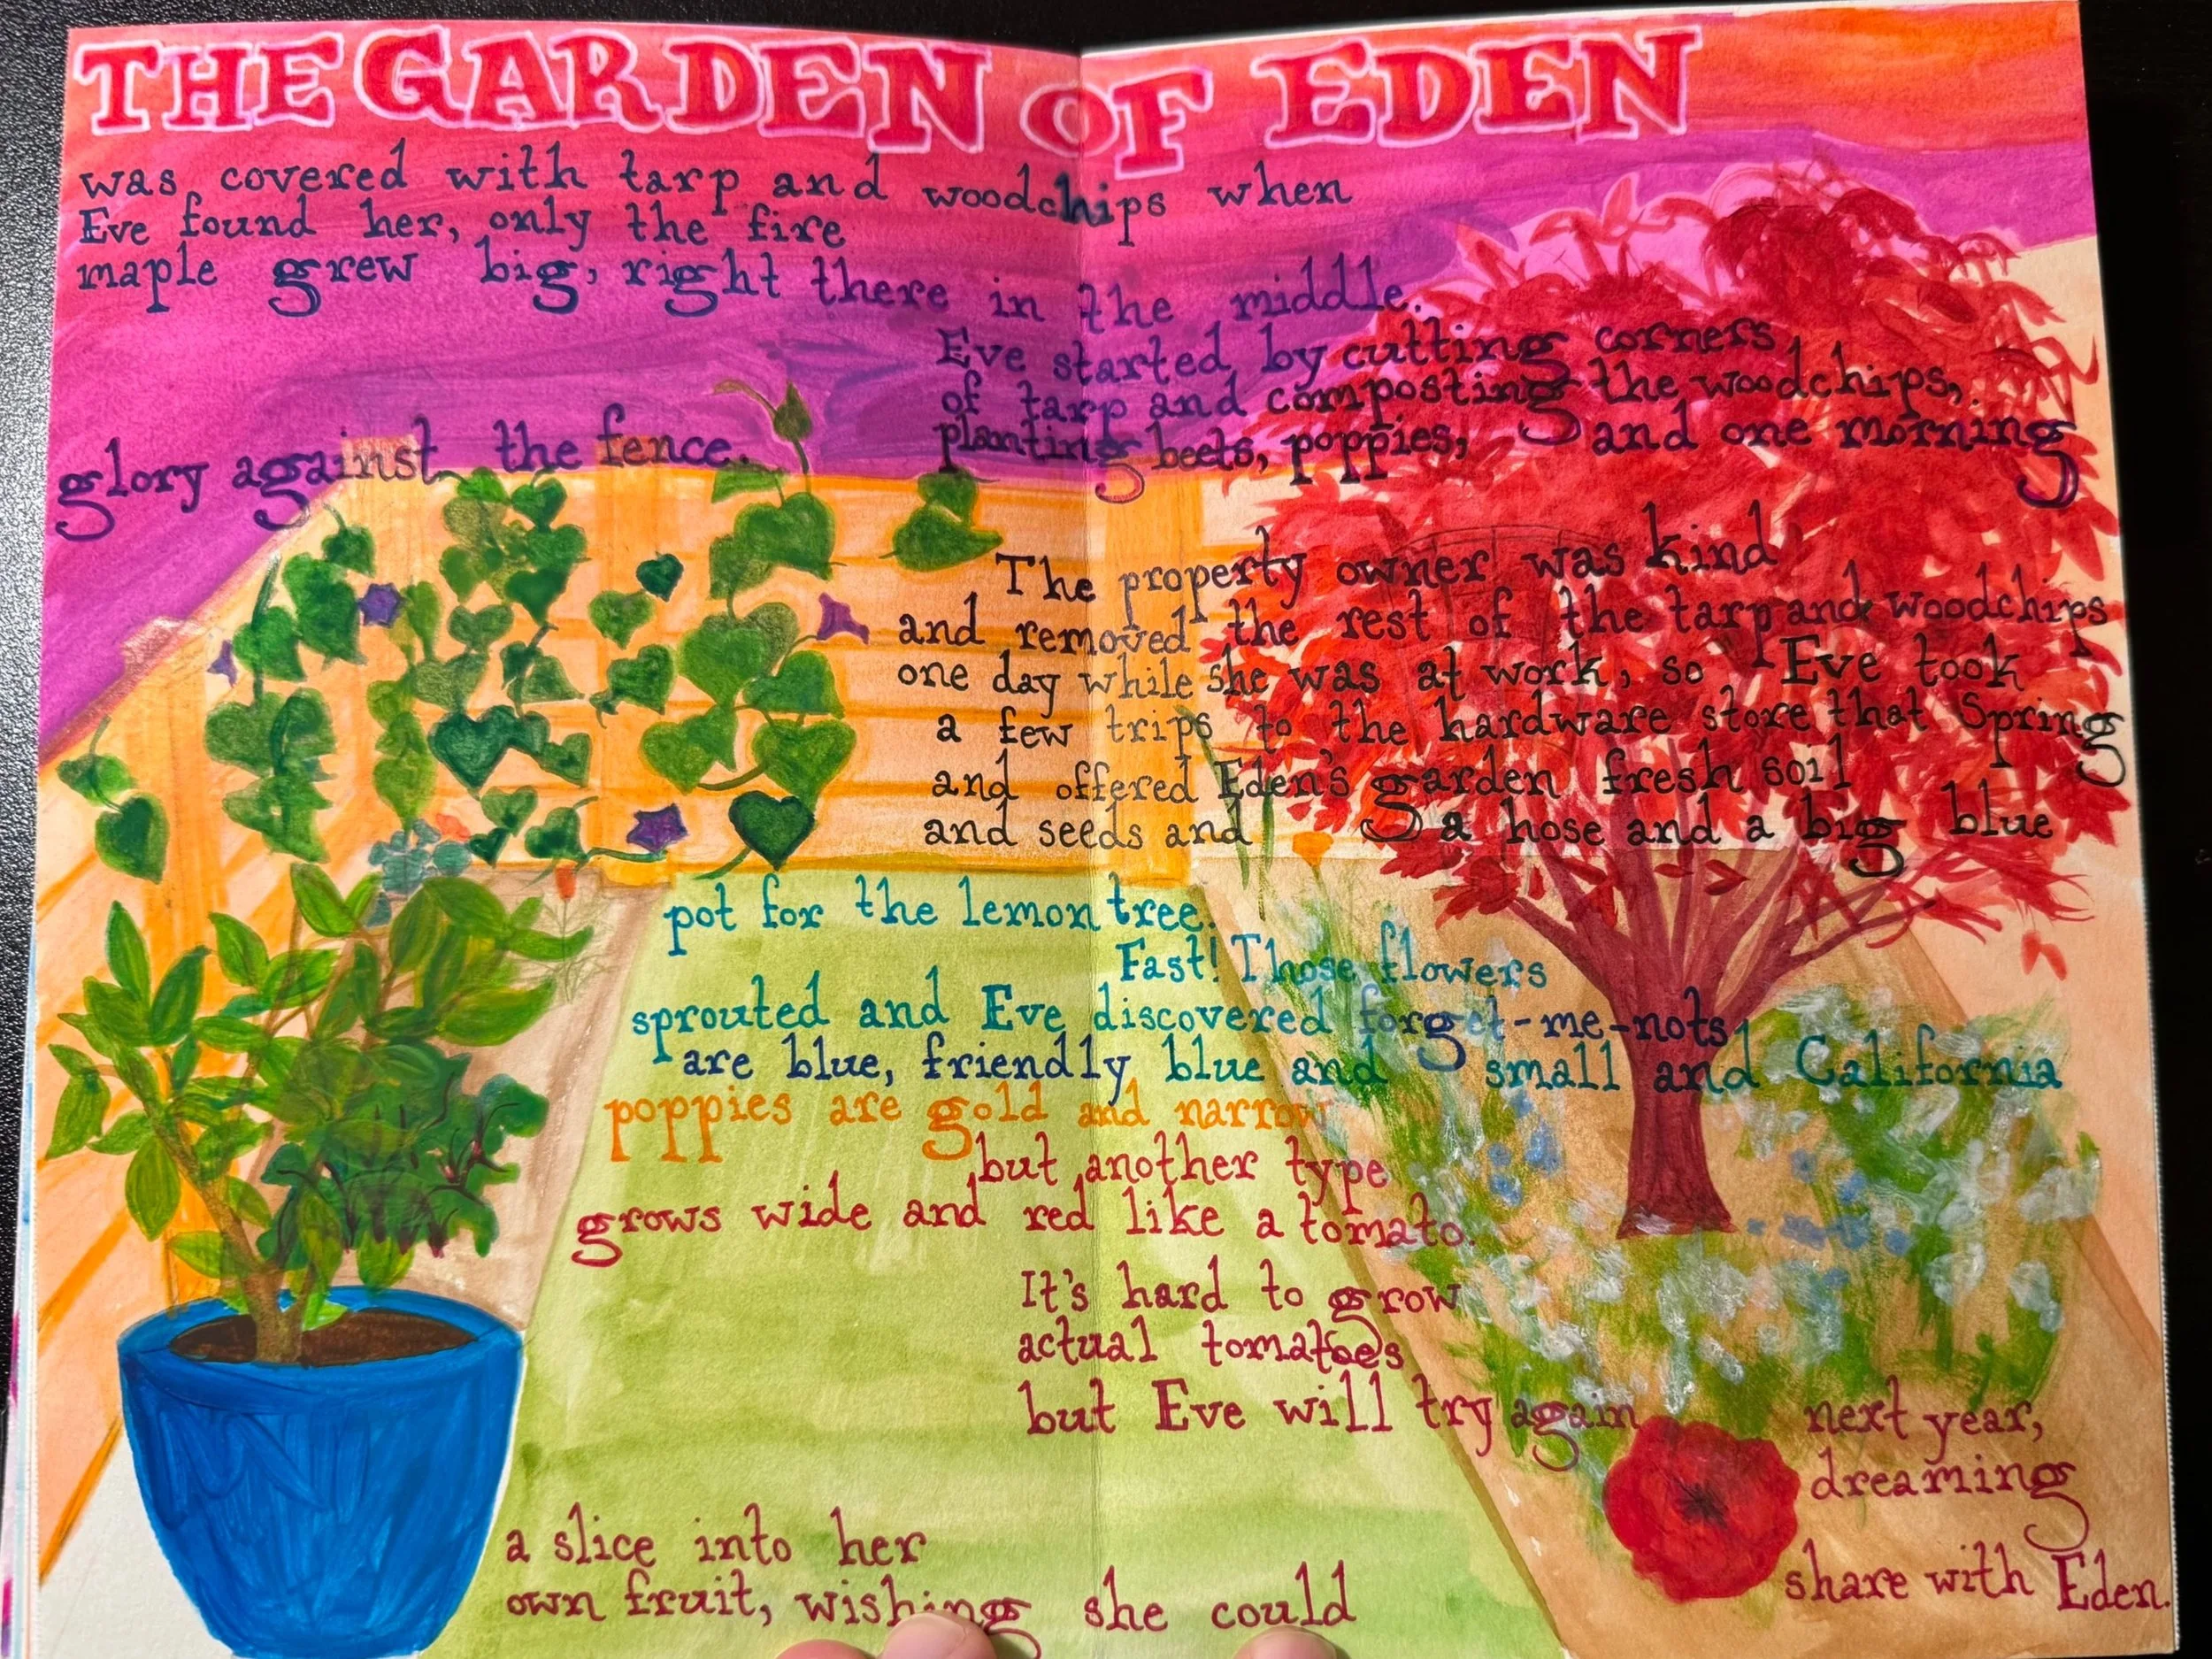 THE GARDEN OF EDEN
was covered with tarp and woodchips when
Eve found her, only the fire
maple grew big, right there in the middle.
Eve started by cutting corners
of tarp and composting the woodchips,
planting beets, poppies, and one morning
glory against the fence.
The property owner was kind
and removed the rest of the tarp and woodchips
one day while she was at work, so Eve took
a few trips to the hardware store that Spring
and offered Eden's garden fresh soil
and seeds and a hose and a big blue
pot for the lemon tree.
Fast! Those flowers
sprouted and Eve discovered forget-me-nots
are blue, friendly blue and small and California
poppies are gold and narrow
but another type
grows wide and red like a tomato.
It's hard to grow
actual tomatoes
but Eve will try again next year,
dreaming
a slice into her
own fruit, wishing she could share with Eden.